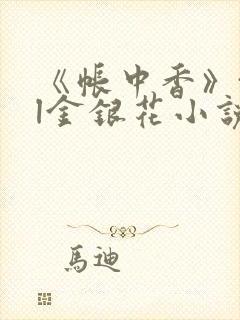 《帳中香》
l金銀花小說
馬迪